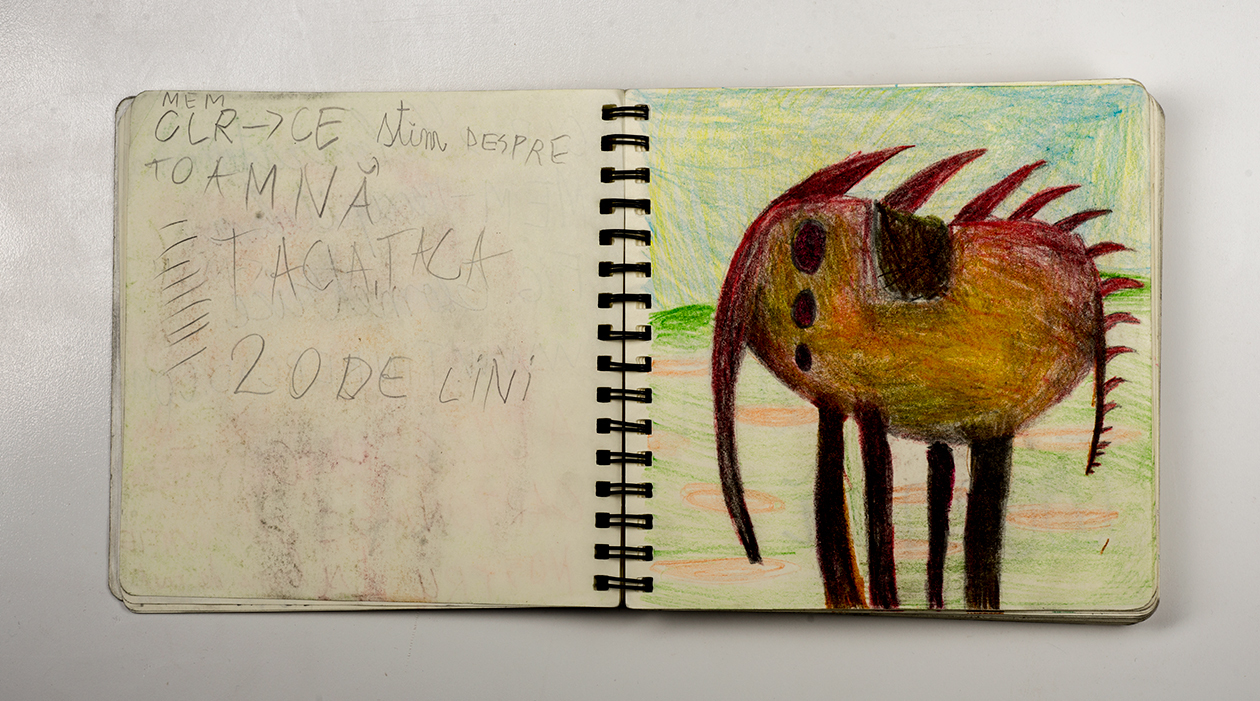 MEM
CLR→CE știm DESPRE
TOAMNĂ
TACATACA
20 DE LiNi